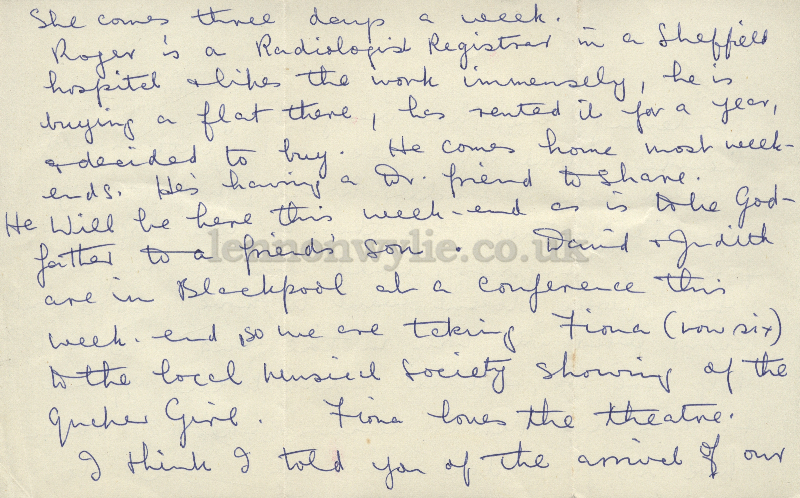 She comes three days a week.
Roger is a Radiologist Registrar in a Sheffield
hospital & likes the work immensely, he is
buying a flat there, has rented it for a year,
& decided to buy. He comes home most week-
ends. He's having a Dr. friend to share.
He will be here this week-end as is to be God-
father to a friend's son. David & Judith
lennonwylie.co.uk
are in Blackpool at a conference this
week-end, so we are taking Fiona (now six)
to the local Musical Society showing of the
Girl. Fiona loves the theatre.
I think I told you of the arrival of our